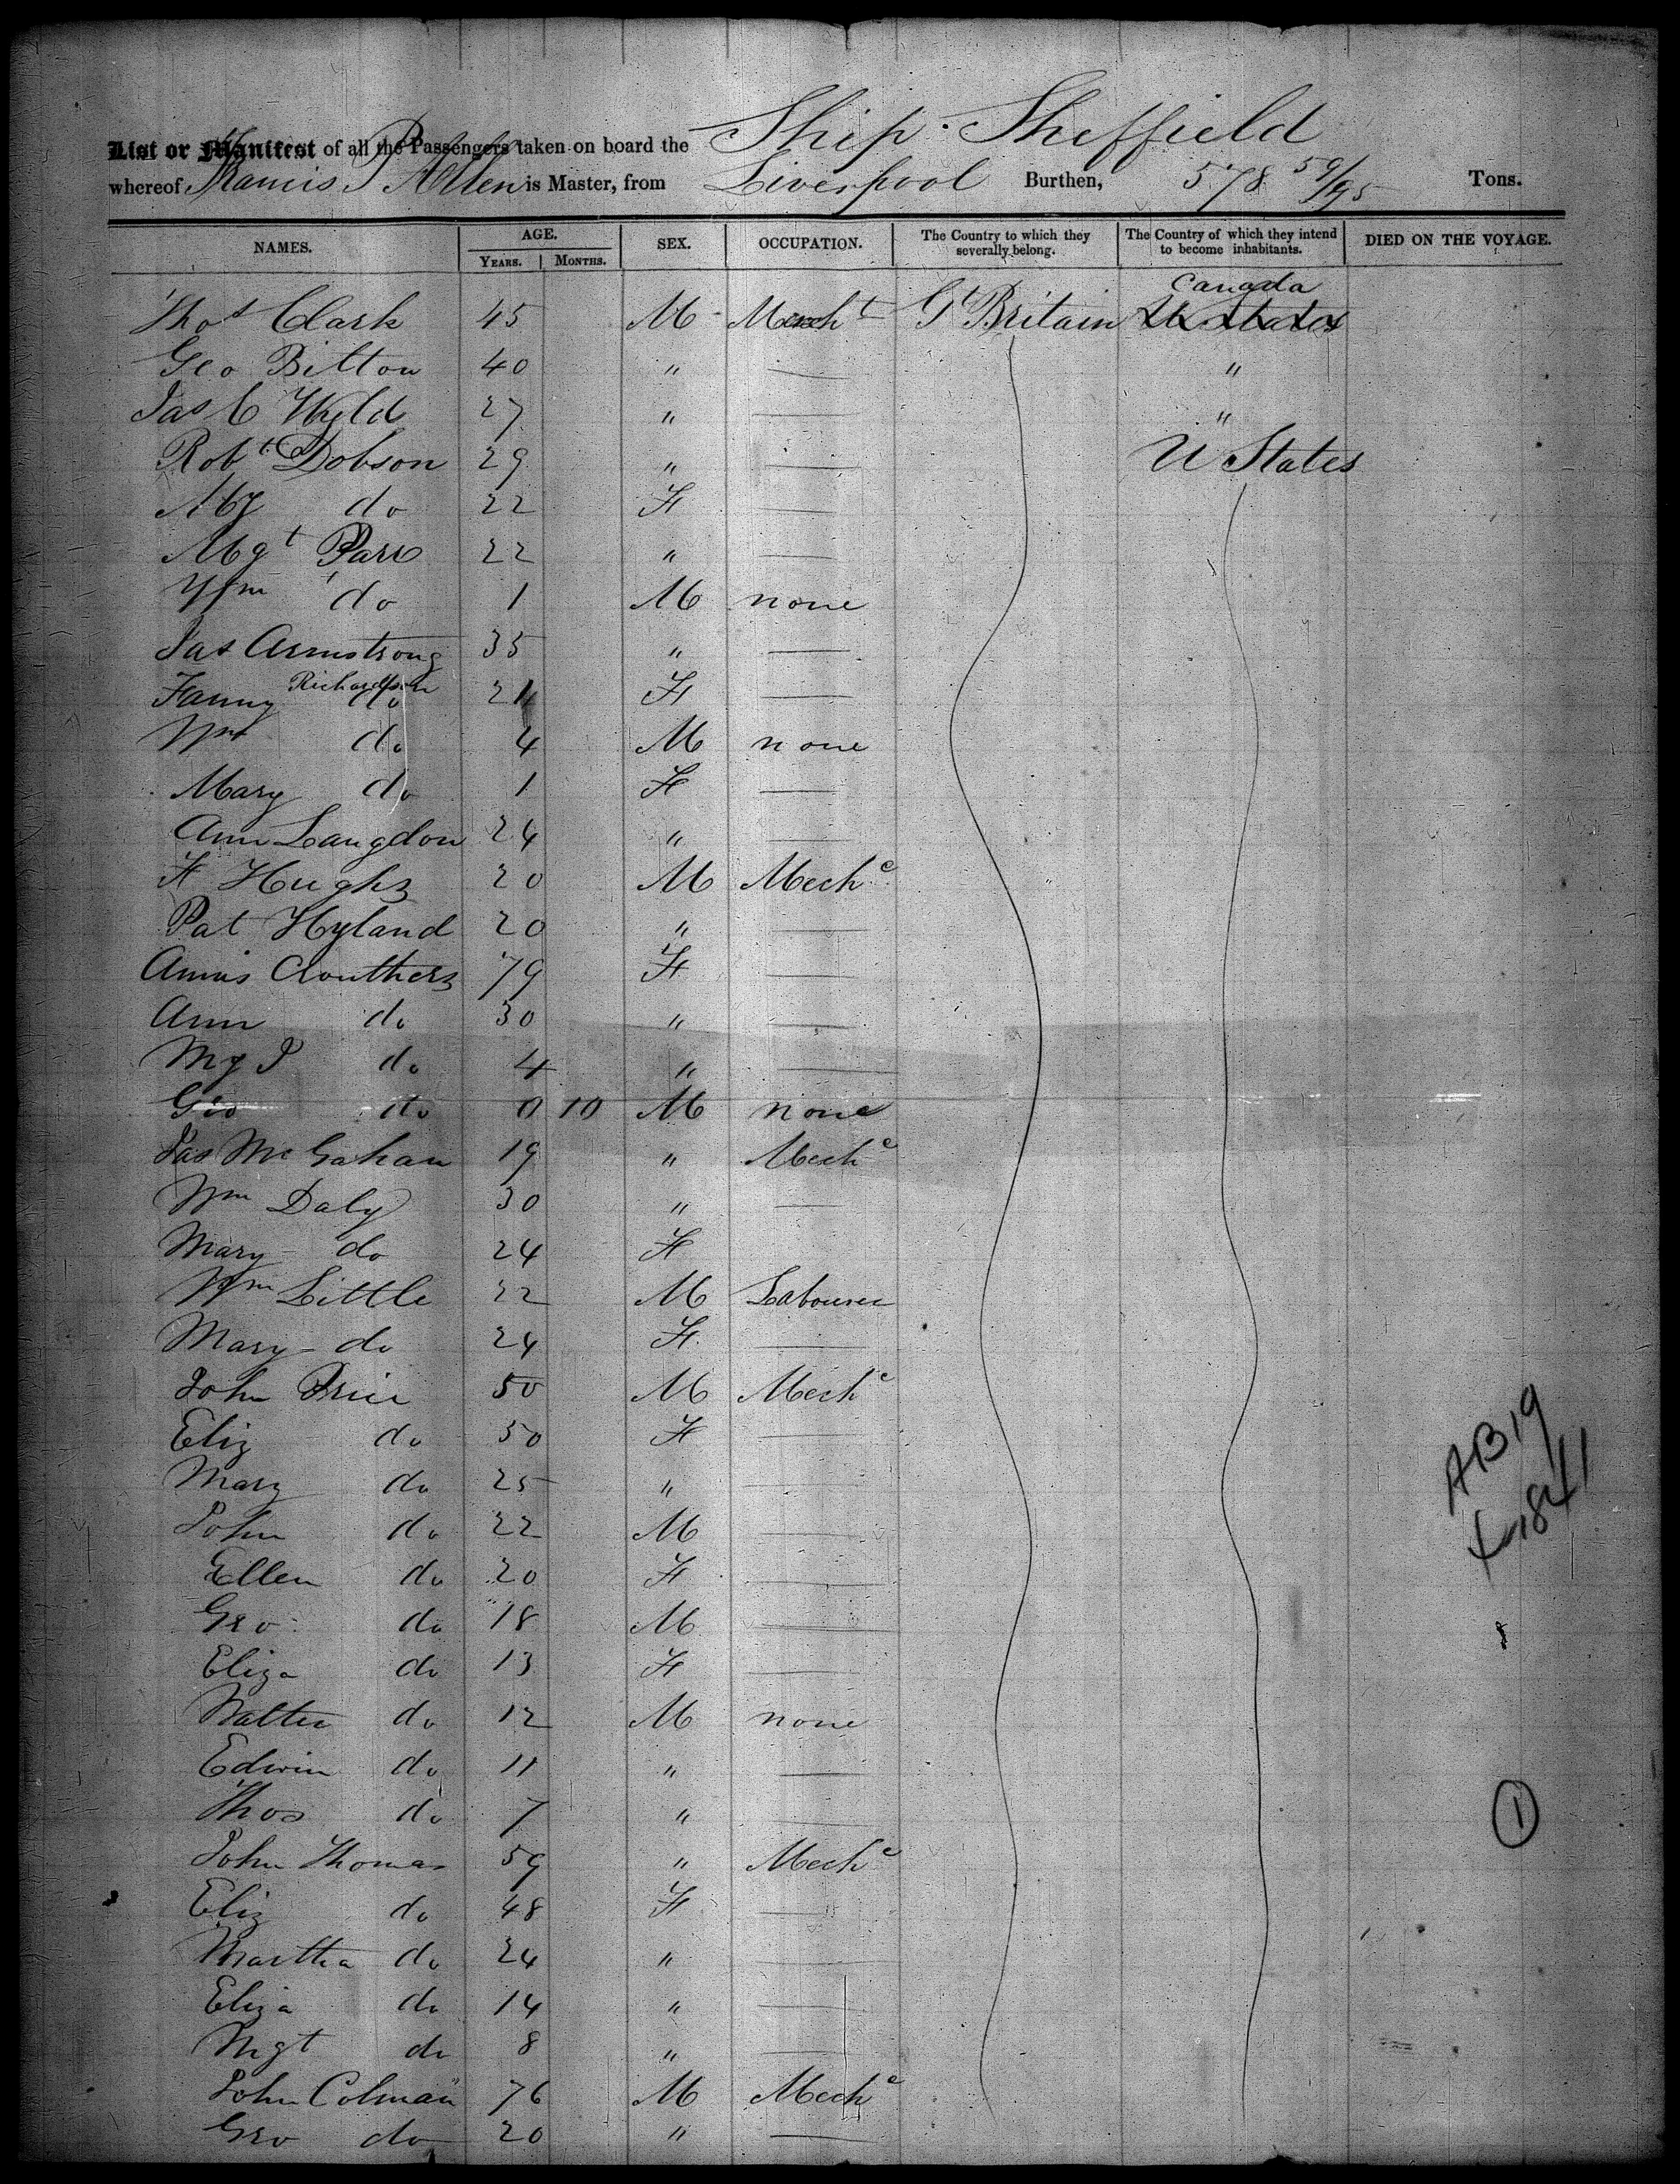 List or Manifest of all the Passengers taken on board the Ship Sheffield
whereof Francis P Allen is Master, from Liverpool Burthen, 578 59/95 Tons.
NAMES. AGE. SEX. OCCUPATION. The Country to which they severally belong. The Country of which they intend to become inhabitants. DIED ON THE VOYAGE.
YEARS. MONTHS.
Canada
Thos Clark 45 M Mercht Gt Britain U States
Geo Bilton 40 " — "
Jas C Wyld 27 " — "
Robt Dobson 29 " — U States
do 22 F —
Mgt Parr 22 " —
Wm do 1 M none
Jas Armstrong 35 " —
Richardson
Fanny do F —
Wm do 4 M none
Mary do 1 F —
Ann Langdon 24 " —
H Hughs 20 M Meche
Pat Hyland 20 " —
Clouthers 79 F —
Ann do 30 " —
do 4 " —
Geo do 0 10 M none
Jas McGahan 19 " Meche
Wm Daly 30 " —
Mary do 24 F
Wm Little 22 M Labourer
Mary do 24 F —
John Price 50 M Meche
Eliz do 50 F —
Mary do 25 " —
John do 22 M —
Ellen do 20 F —
Geo do 18 M —
Eliza do 13 F —
Walter do 12 M none
Edwin do 11 " —
Thos do 7 " —
John Thomas 59 " Meche
Eliz do 48 F —
Martha do 24 " —
Eliza do 14 " —
Mgt do 8 " —
John Colman 76 M Meche
Geo do 20 " —
1841
1